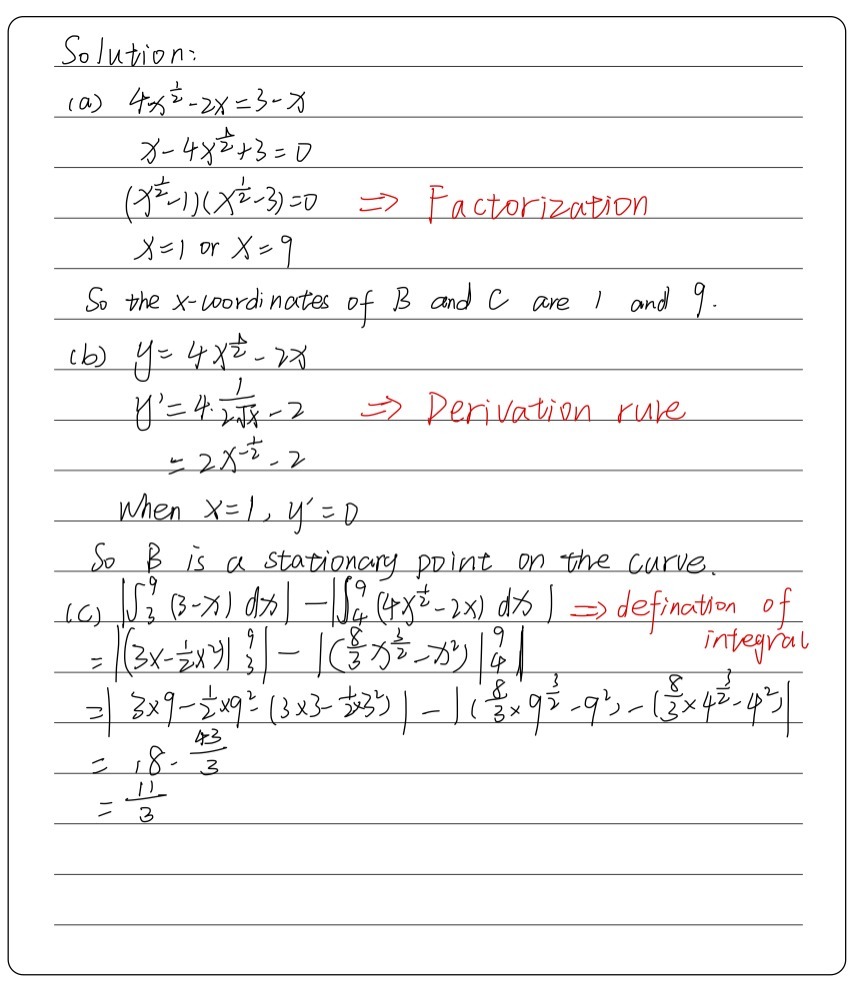 Solution:
(a) 4x^{1/2} - 2x = 3 - x
x - 4x^{1/2} + 3 = 0
(x^{1/2} - 1)(x^{1/2} - 3) = 0 ⇒ Factorization
x = 1 or x = 9
So the x-coordinates of B and C are 1 and 9.
(b) y = 4x^{1/2} - 2x
y' = 4 · 1/(2√x) - 2 ⇒ Derivation rule
= 2x^{-1/2} - 2
When x = 1, y' = 0
So B is a stationary point on the curve.
(c) |∫_3^9 (3 - x) dx| - |∫_4^9 (4x^{1/2} - 2x) dx| ⇒ defination of
integral
= |(3x - 1/2 x²)|_3^9| - |(8/3 x^{3/2} - x²)|_4^9|
= |3×9 - 1/2×9² - (3×3 - 1/2×3²)| - |(8/3 × 9^{3/2} - 9²) - (8/3 × 4^{3/2} - 4²)|
= 18 - 43/3
= 11/3